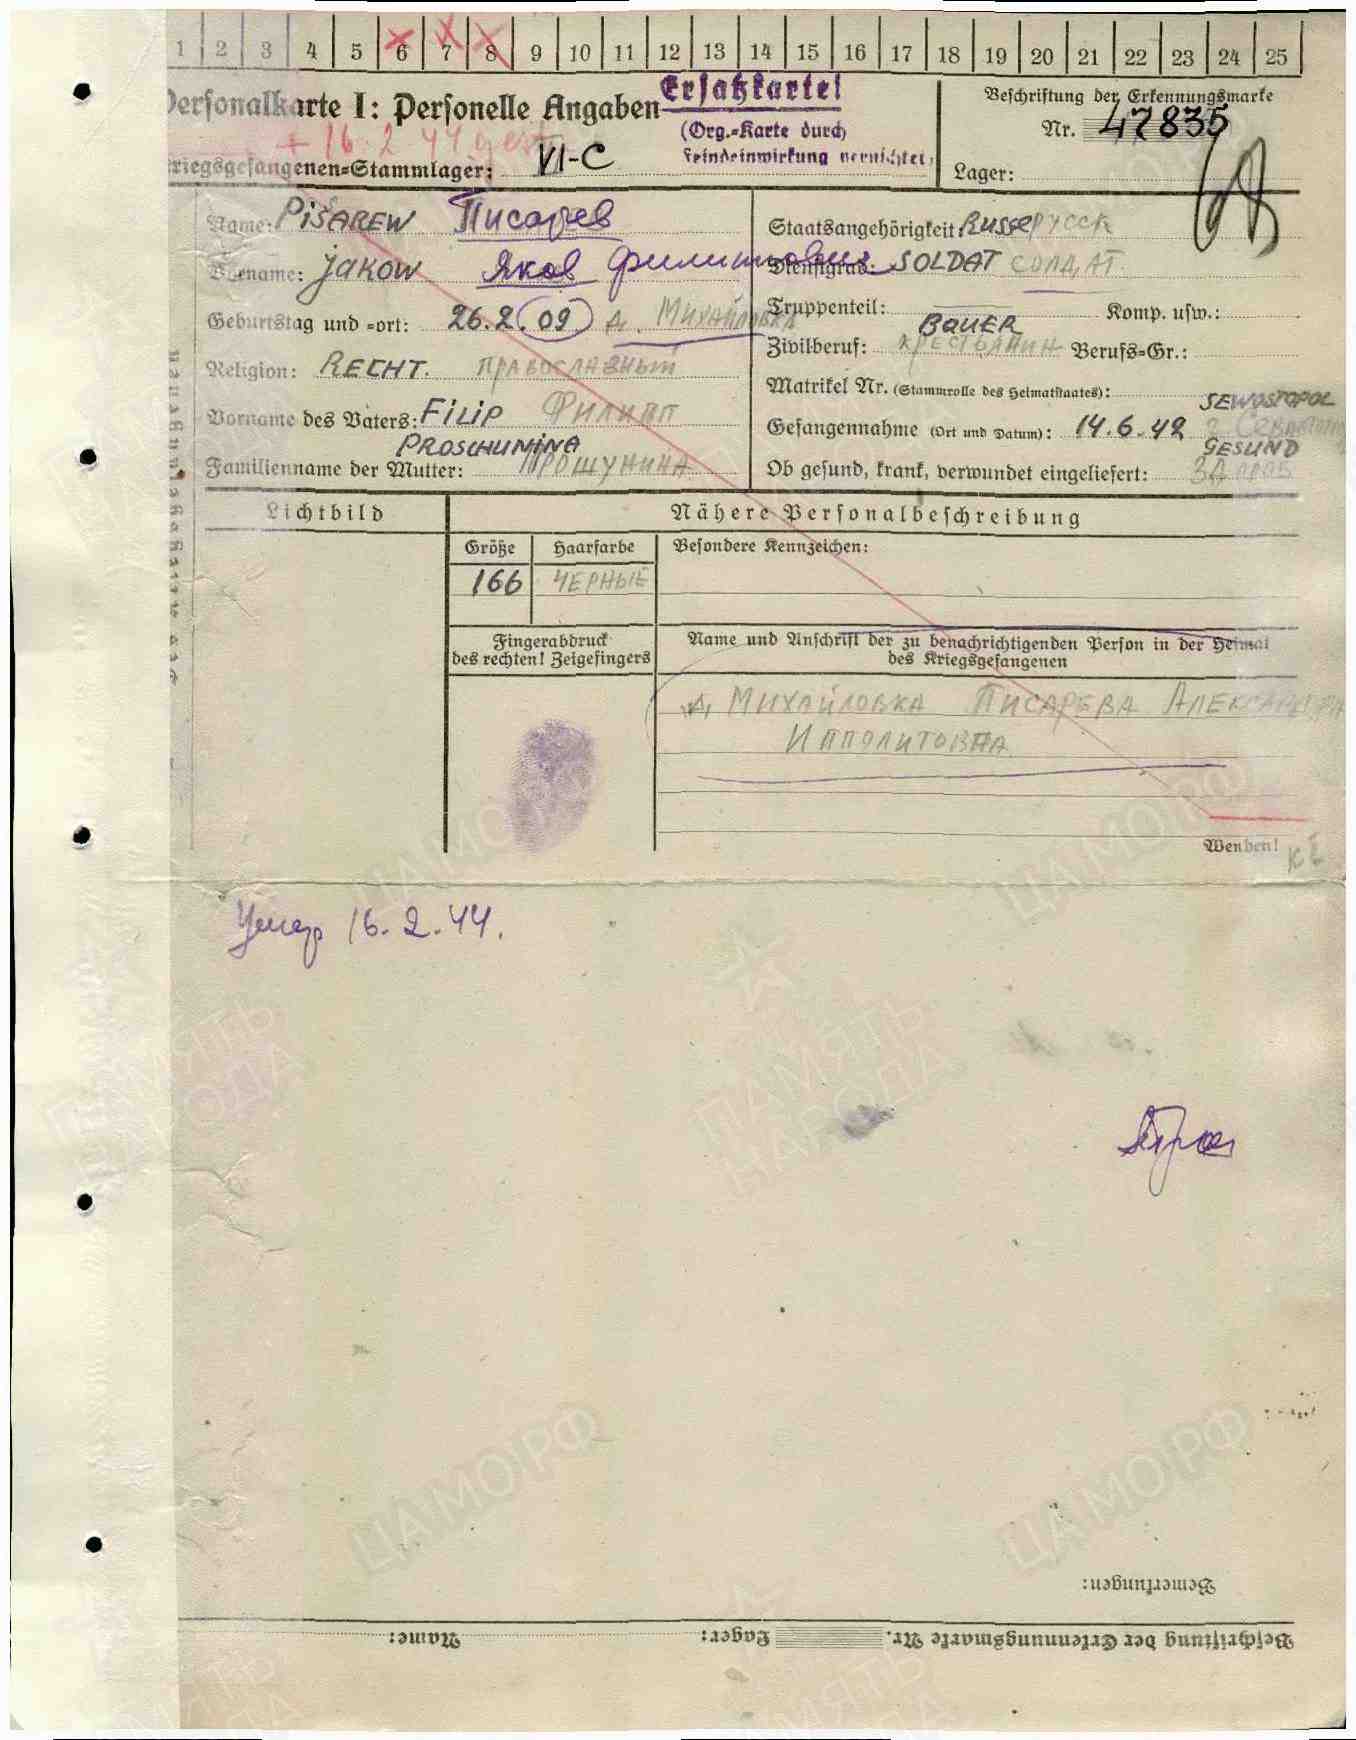 1 2 3 4 5 6 7 8 9 10 11 12 13 14 15 16 17 18 19 20 21 22 23 24 25
Personalkarte I: Personelle Angaben
Ersatzkarte!
(Org.=Karte durch
Feindeinwirkung vernichtet)
Beschriftung der Erkennungsmarke
Nr. 47835
Lager:
+ 16.2.44 gest.
Kriegsgefangenen=Stammlager: VI-C
Name: PiŠAREW Писарев
Vorname: jakow Яков Филиппович
Geburtstag und =ort: 26.2.09 д. Михайловка
Religion: RECHT. ПРАВОСЛАВНЫЙ
Vorname des Vaters: FiLiP ФИЛИПП
PROSCHUNINA
Familienname der Mutter: ПРОШУНИНА
Staatsangehörigkeit: Russe РУССК
Dienstgrad: SOLDAT СОЛДАТ
Truppenteil: Komp. usw.:
BAUER
Zivilberuf: КРЕСТЬЯНИН Berufs=Gr.:
Matrikel Nr. (Stammrolle des Heimatstaates):
SEWOSTOPOL
Gefangennahme (Ort und Datum): 14.6.42
GESUND
Ob gesund, krank, verwundet eingeliefert:
Lichtbild
Nähere Personalbeschreibung
Größe Haarfarbe Besondere Kennzeichen:
166 ЧЕРНЫЕ
Fingerabdruck
des rechten! Zeigefingers
Name und Anschrift der zu benachrichtigenden Person in der Heimat
des Kriegsgefangenen
д. МИХАЙЛОВКА ПИСАРЕВА АЛЕКСАНДРА
ИППОЛИТОВНА
Wenden!
Умер 16.2.44.
Bemerkungen:
Beschriftung der Erkennungsmarke Nr. Lager: Name:
ЦАМО.РФ
ПАМЯТЬ
НАРОДА